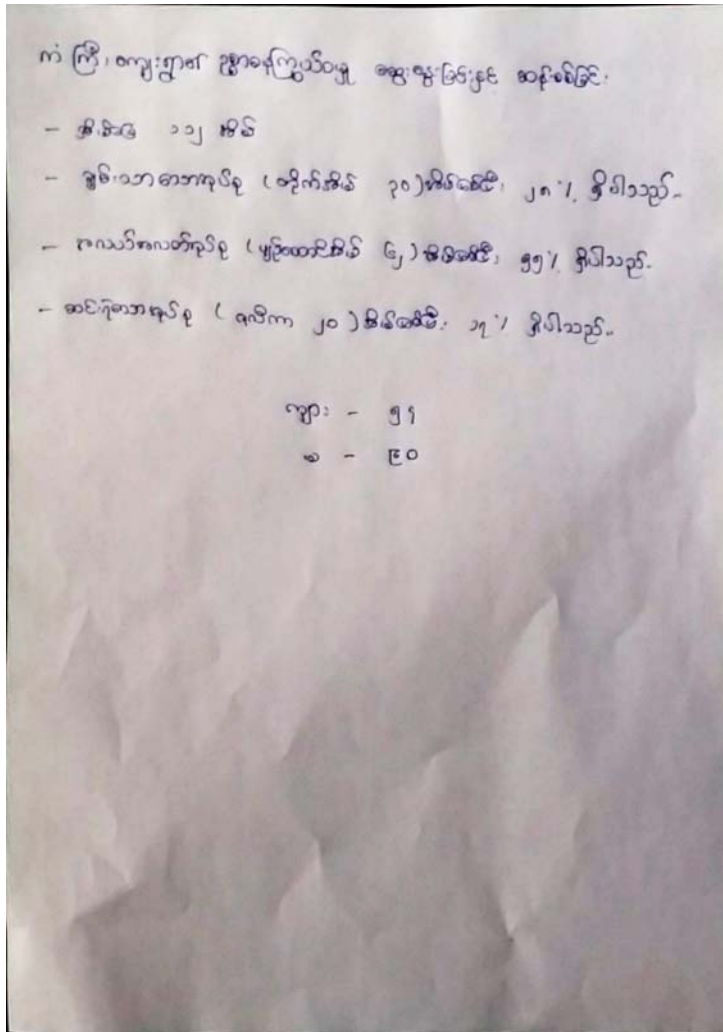 ကံကြီး၊ ကျေးရွာ၏ ဥစ္စာဓနကြွယ်ဝမှု ဆွေးနွေးခြင်းနှင့် ဆန်းစစ်ခြင်း
- အိမ်ခြေ ၁၁၂ အိမ်
- ချမ်းသာသောအုပ်စု (တိုက်အိမ် ၃၀) အိမ်ခြေစီး ၂၈% ရှိပါသည်။
- အလယ်အလတ်အုပ်စု (ပျဉ်ထောင်အိမ် ၆၂) အိမ်ခြေစီး ၅၅% ရှိပါသည်။
- ဆင်းရဲသောအုပ်စု ( ၂၀ ) အိမ်ခြေစီး ၁၇% ရှိပါသည်။
ကျား - ၅၅
မ - ၉၀